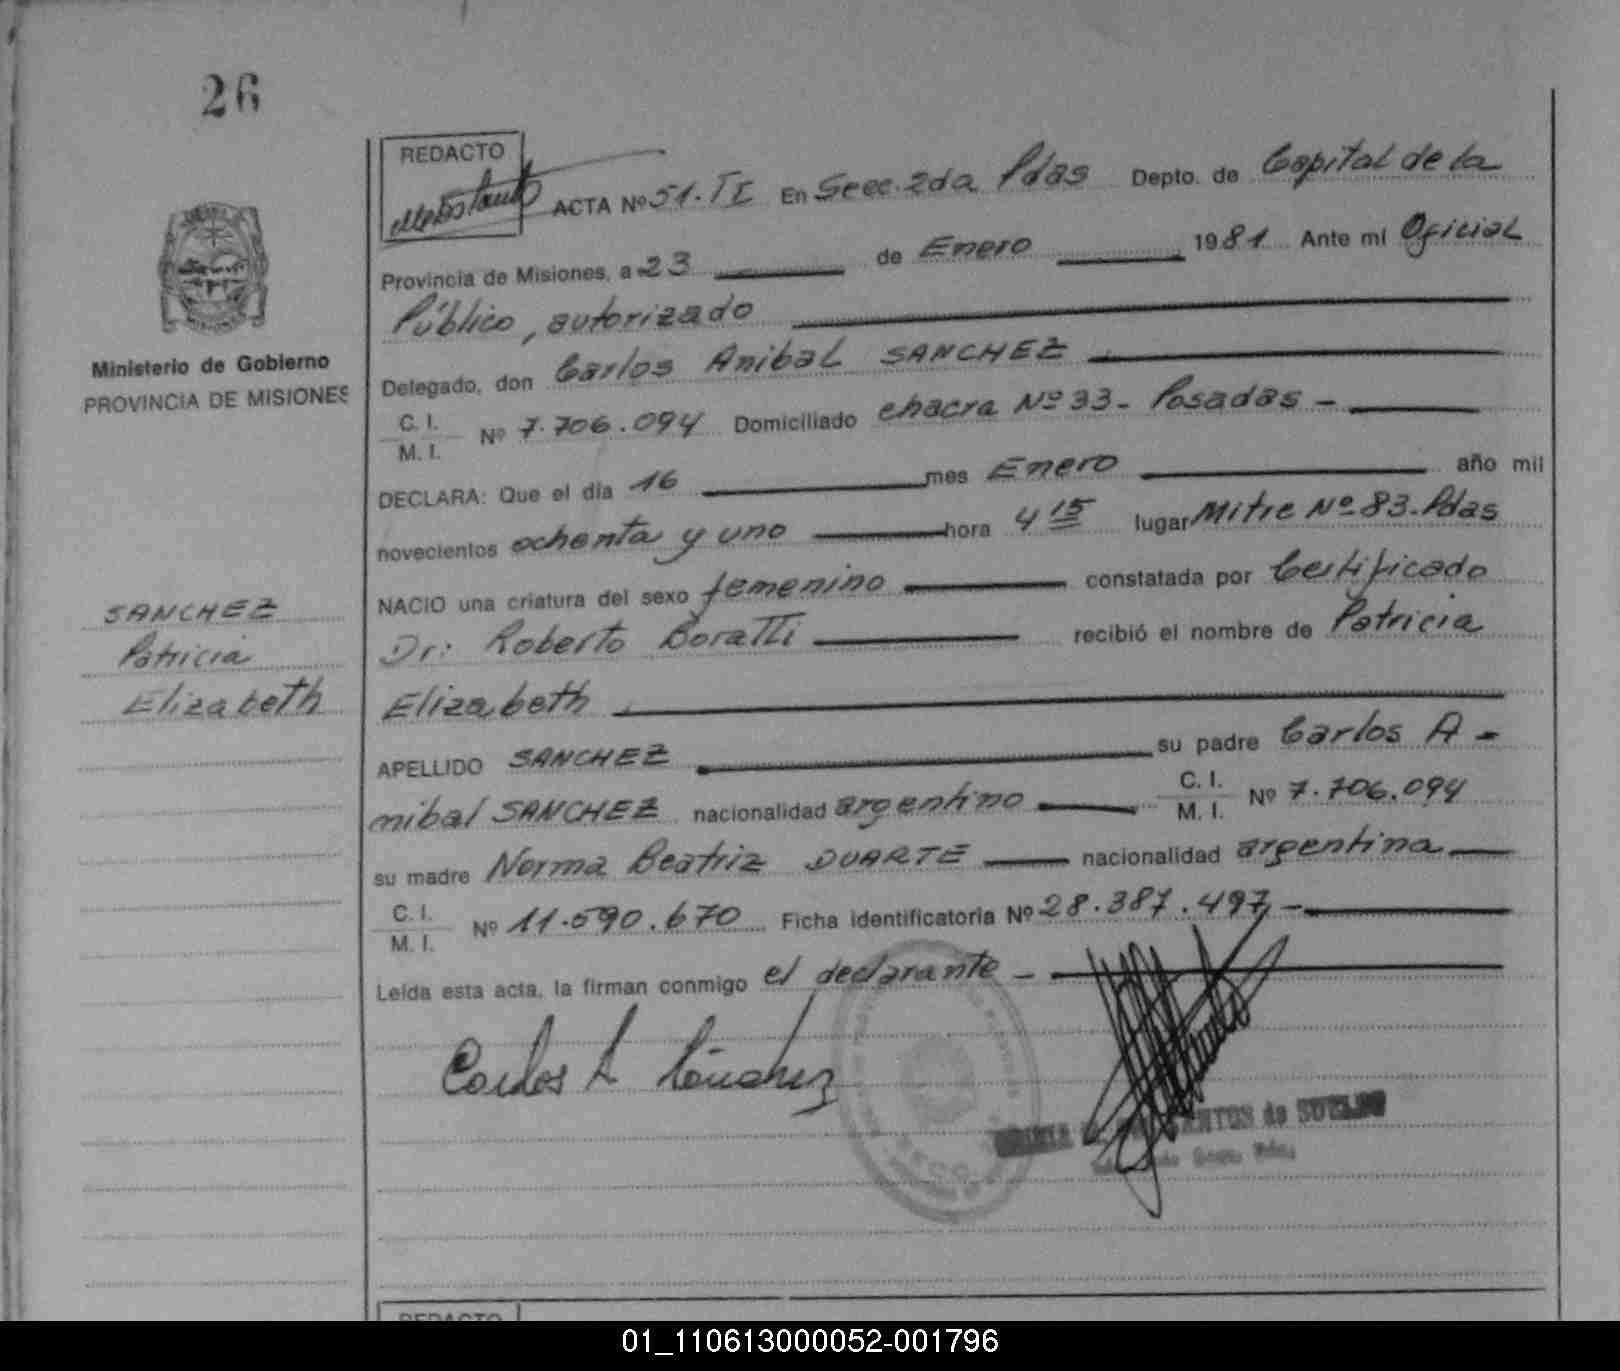 26
REDACTO
ACTA Nº 51. TI En Secc. 2da Pdas Depto. de Capital de la
Provincia de Misiones, a 23 de Enero 1981 Ante mi Oficial
Público, autorizado
Delegado, don Carlos Anibal SANCHEZ
C. I.
M. I. Nº 7.706.094 Domiciliado chacra Nº 33 - Posadas -
DECLARA: Que el día 16 mes Enero año mil
novecientos ochenta y uno hora 4 15 lugar Mitre Nº 83. Pdas
NACIO una criatura del sexo femenino constatada por Certificado
Dr: Roberto Boratti recibió el nombre de Patricia
Elizabeth
APELLIDO SANCHEZ su padre Carlos A -
nibal SANCHEZ nacionalidad argentino C. I.
M. I. Nº 7.706.094
su madre Norma Beatriz DUARTE nacionalidad argentina
C. I.
M. I. Nº 11.590.670 Ficha identificatoria Nº 28.387.497 -
Leída esta acta, la firman conmigo el declarante -
Carlos A Sánchez
de SUELDO
Ministerio de Gobierno
PROVINCIA DE MISIONES
SANCHEZ
Patricia
Elizabeth
REDACTO
01_110613000052-001796